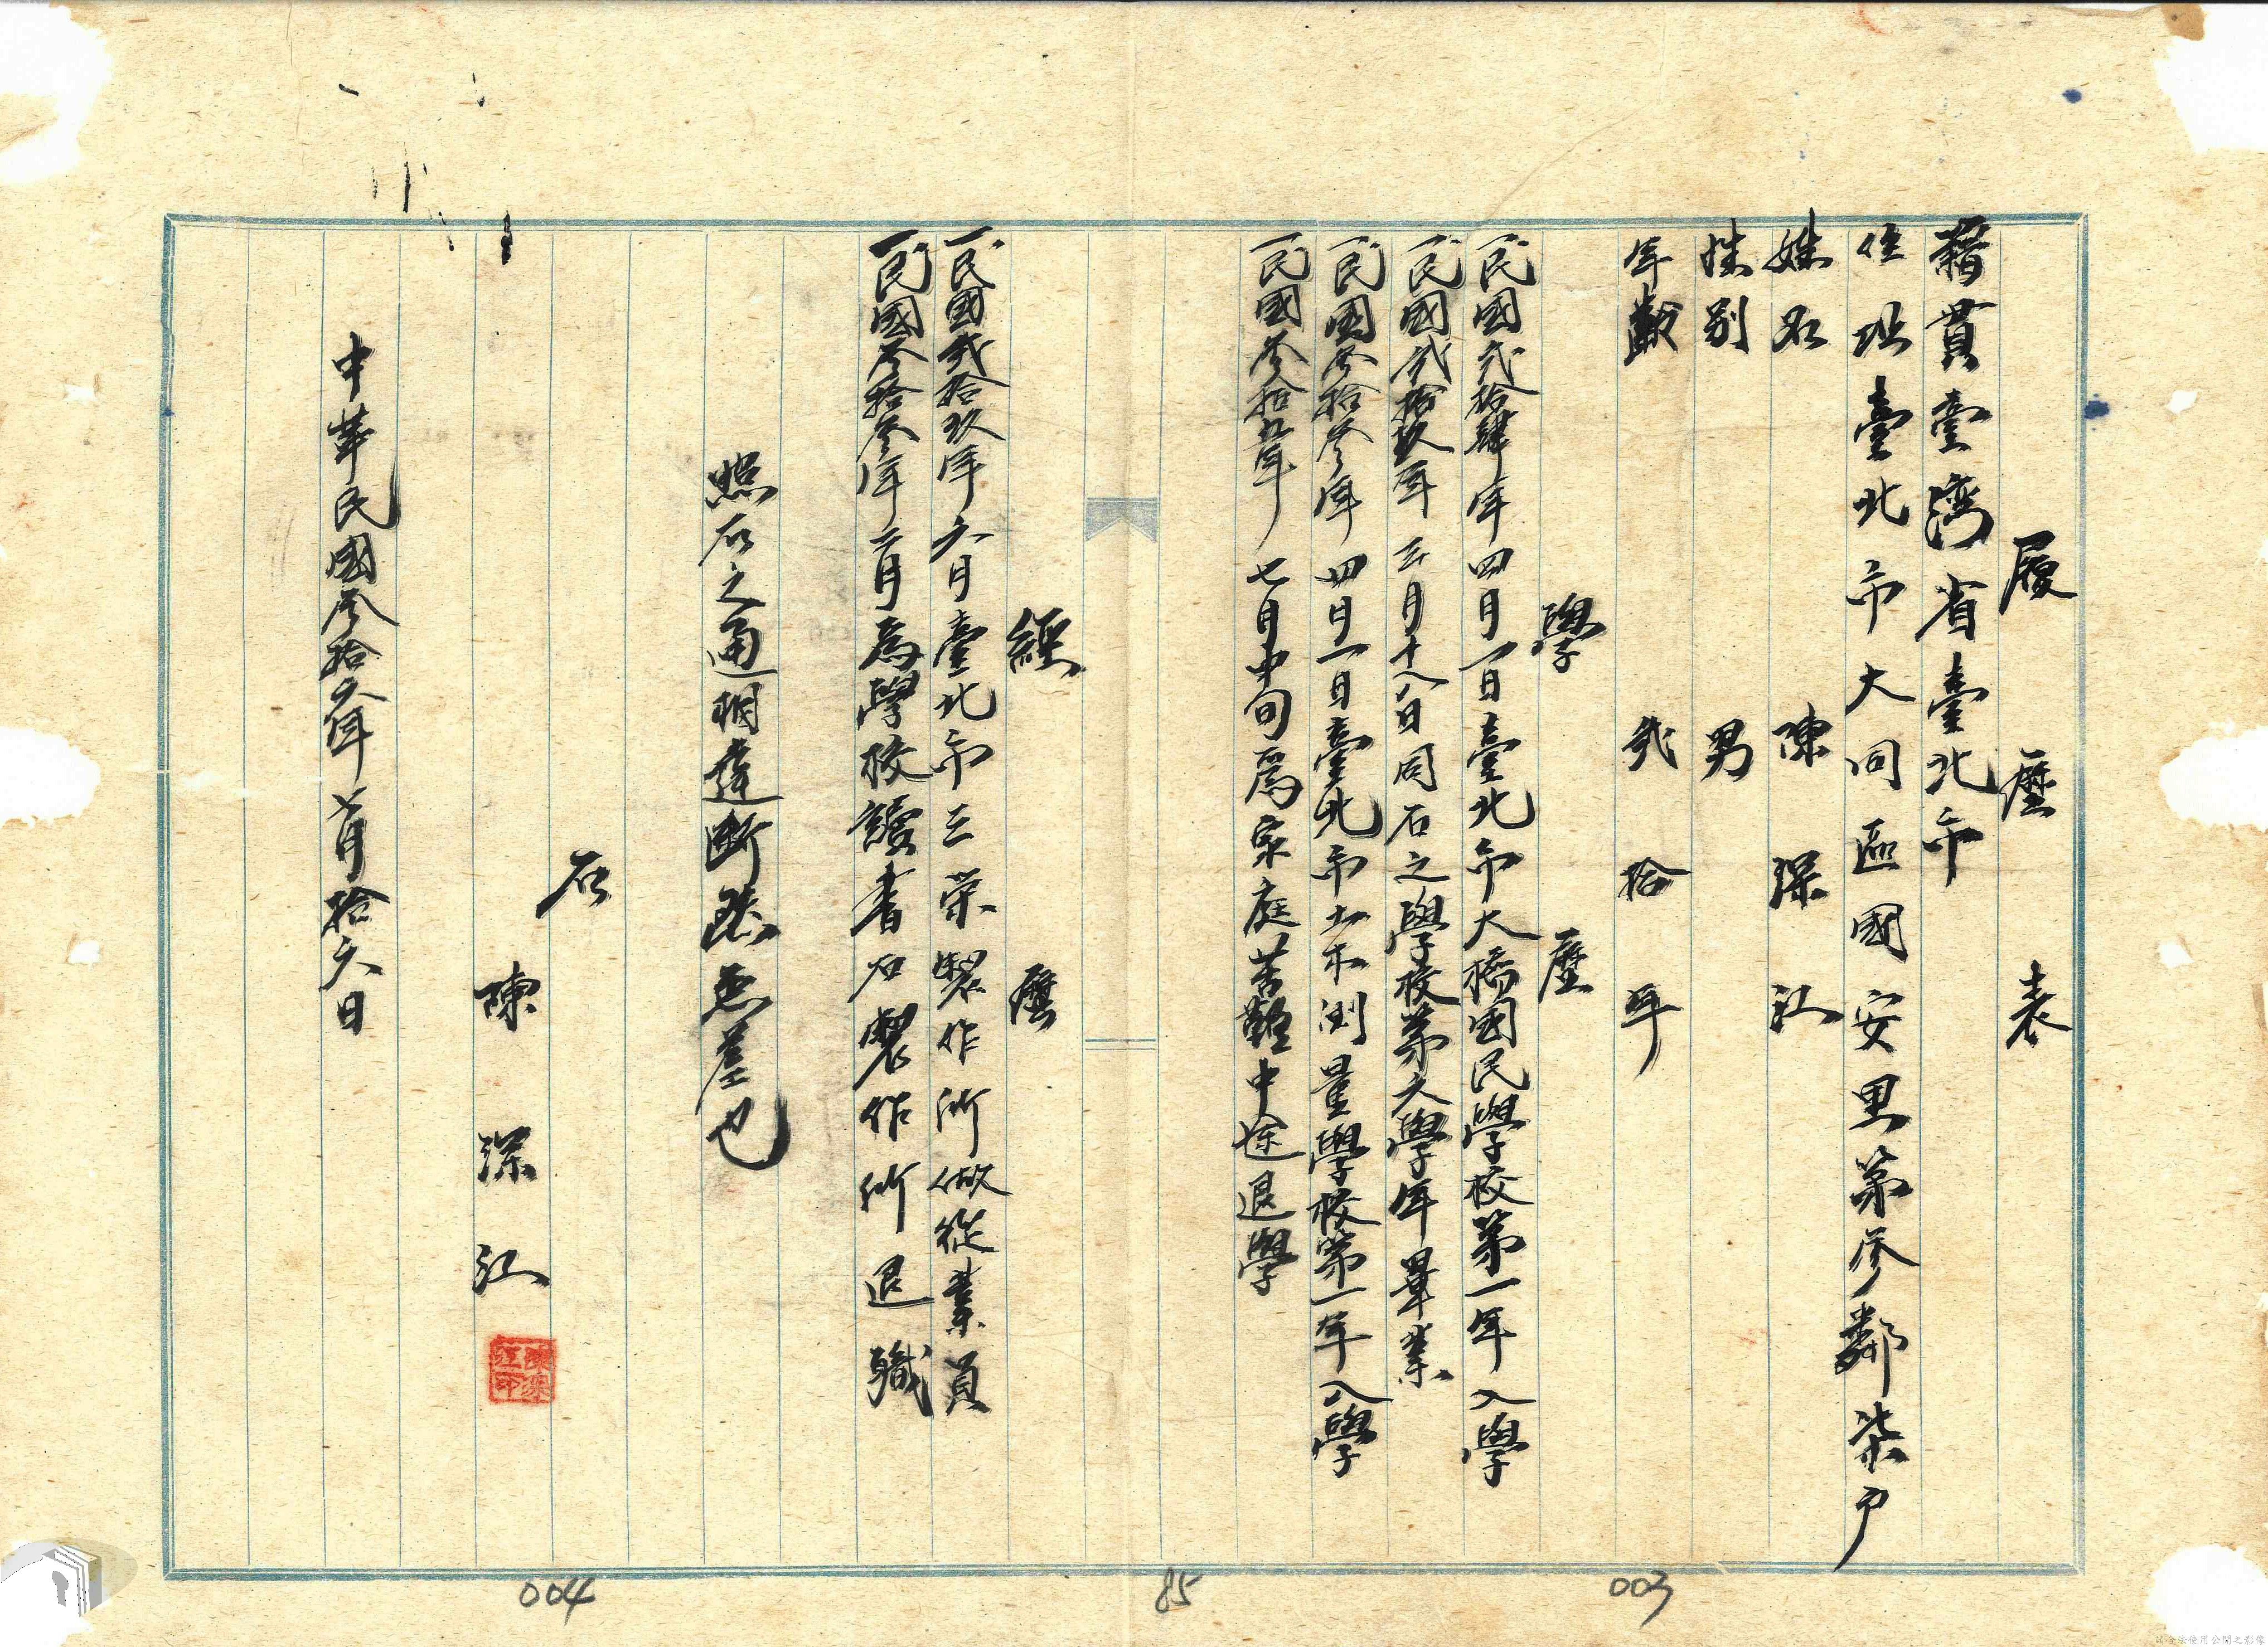 履歷表
籍貫臺灣省臺北市
住址臺北市大同區國安里第參鄰柒戶
姓名 陳深江
姓別 男
年齡 弍拾年
學歷
一民國弍拾肆年四月一日臺北市大橋國民學校第一年入學
一民國弍拾玖年三月十八日同右之學校第六學年畢業
一民國參拾參年四月一日臺北市土木測量學校第一年入學
一民國參拾五年七月中旬為家庭苦難中途退學
經歷
一民國弍拾玖年六月臺北市三榮製作所做從業員
一民國參拾參年二月為學校讀書右製作所退職
照右之通相違断無差也
右
陳深江
中華民國參拾六年七月拾六日
陳深江印
004
85
003